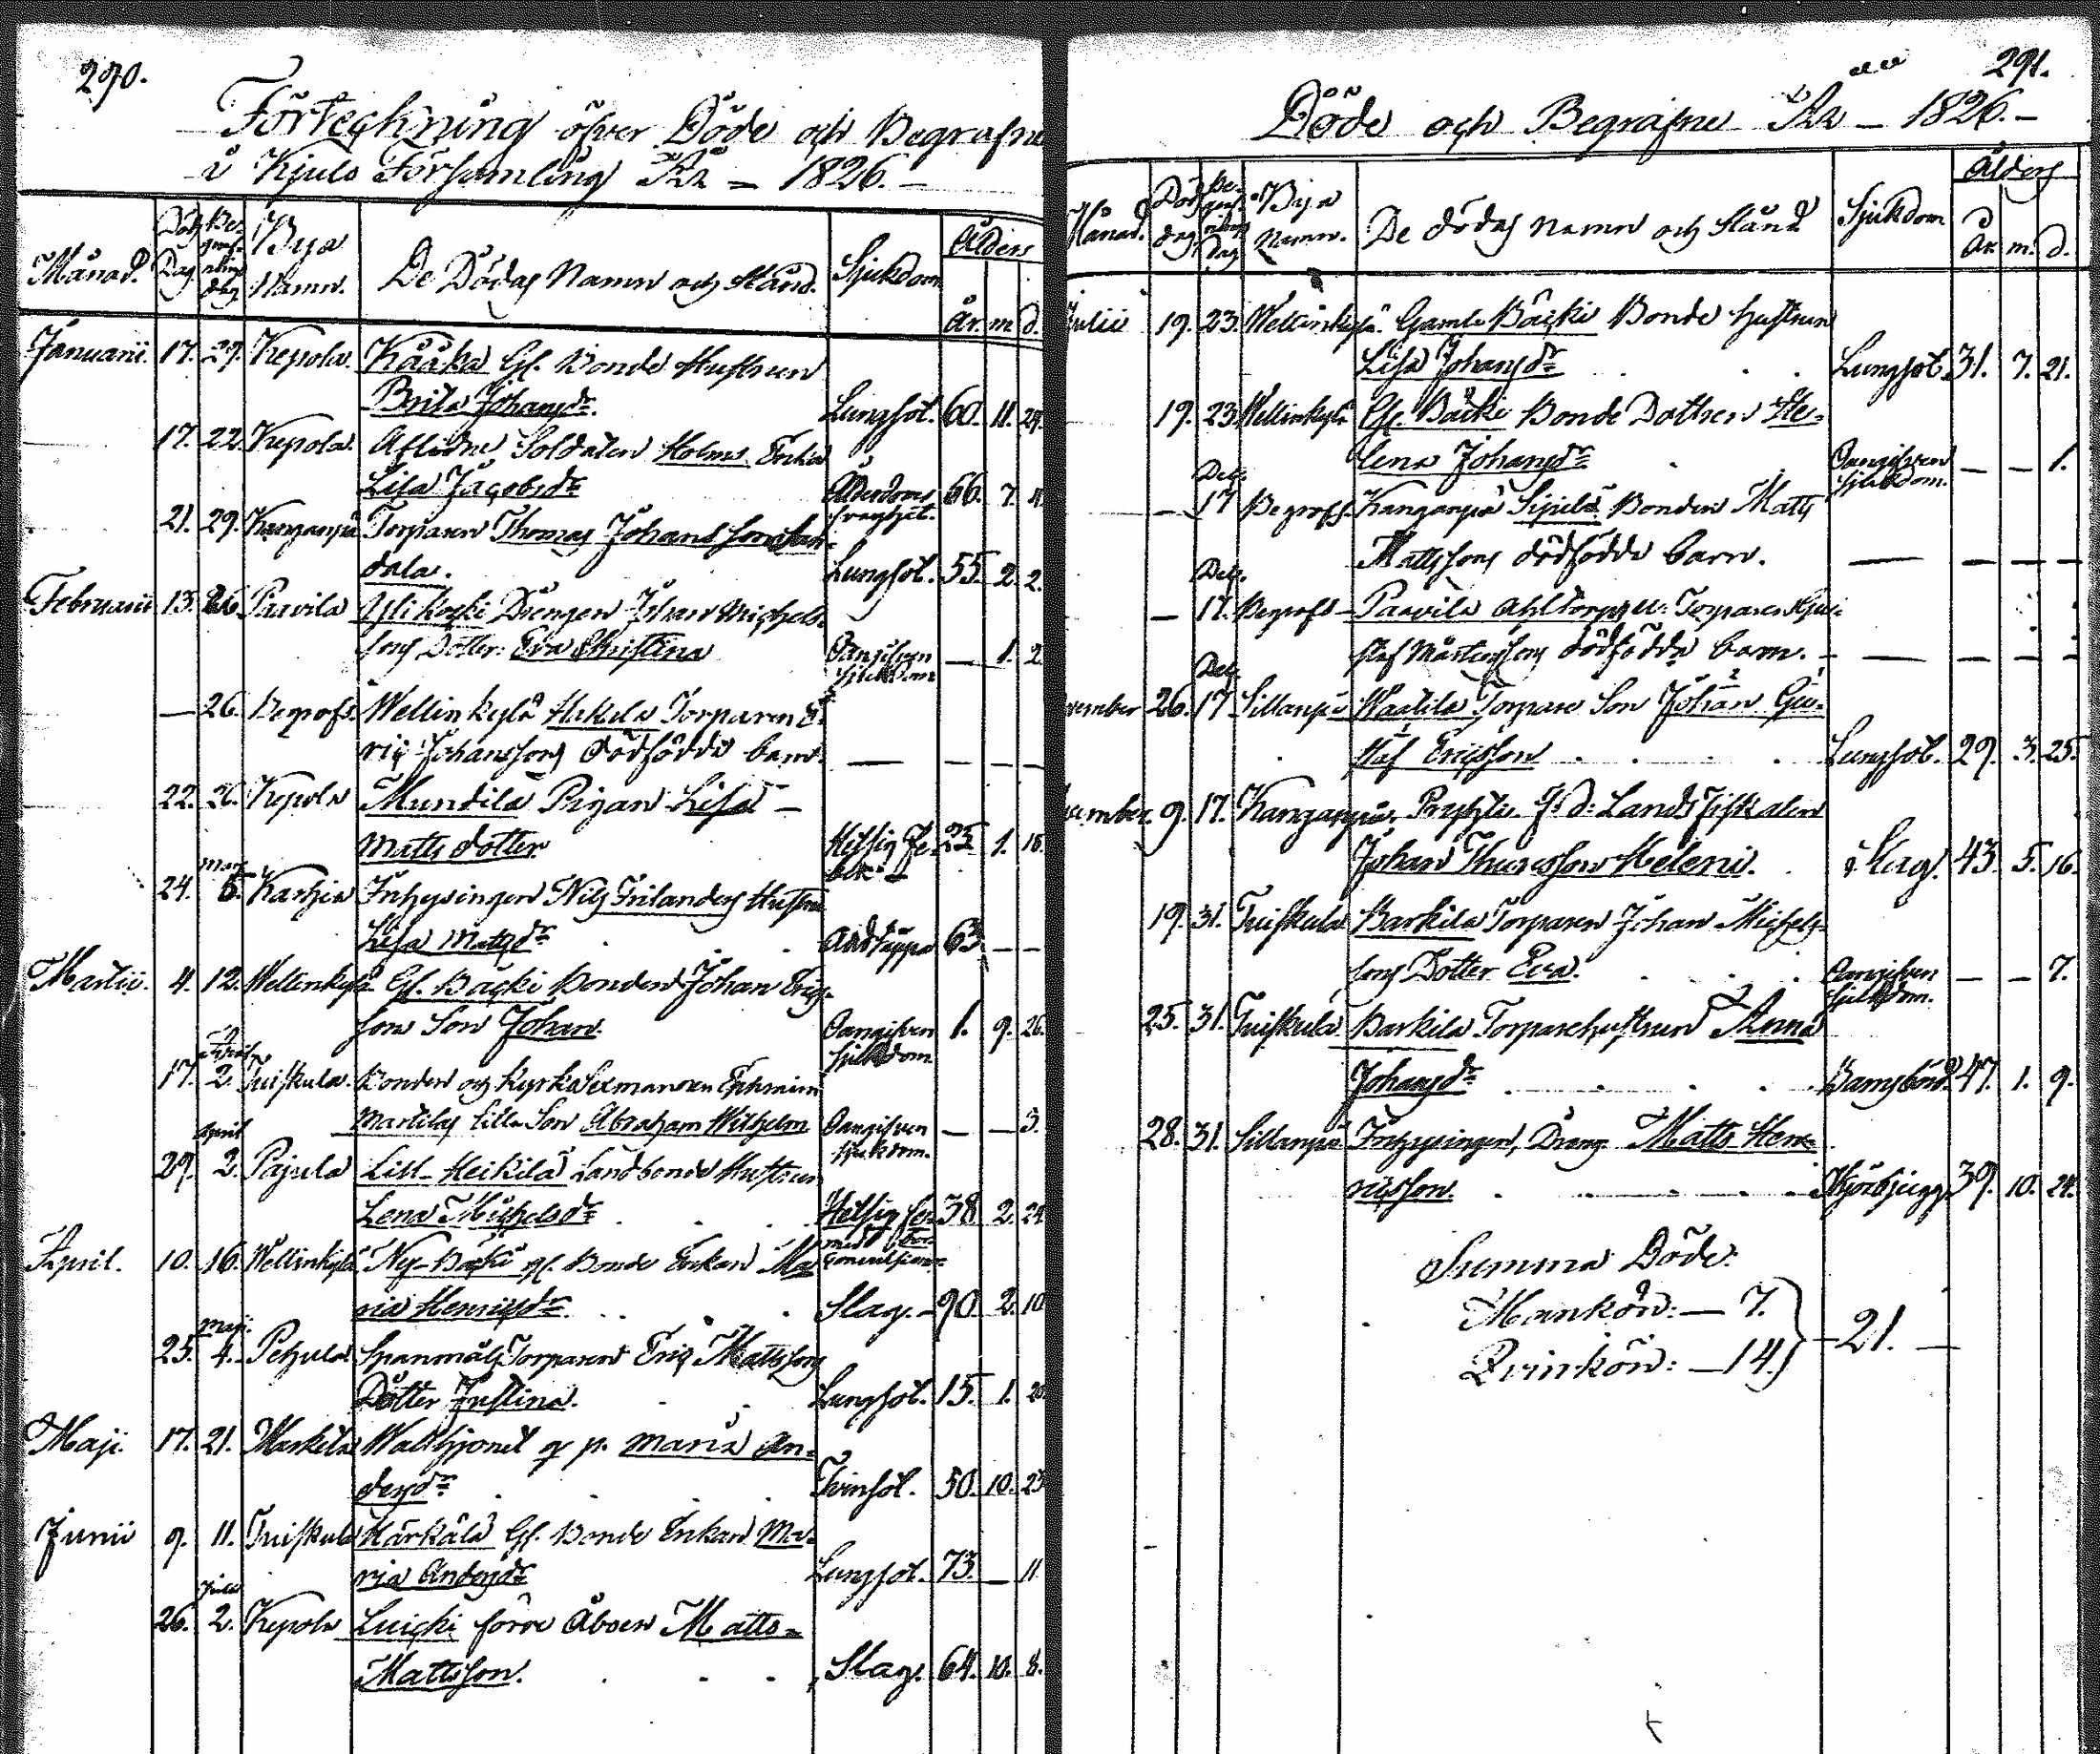 290.
Förteckning öfver Döde och Begrafne
i Kjulo Församling År – 1826. –
Månad. Döds Dag Begrafnings dag Bya Namn. De Dödas Namn och Stånd. Sjukdom Ålders År. m. d.
Januarii. 17. 29. Kepola. Kääkä Gl. Bonde Hustrun
Brita Johansdr. Lungsot. 60. 11. 29.
17. 22. Kepola. Aflidne Soldaten Holms Enka
Lisa Jacobsdr Ålderdoms svaghet. 66. 7. 4.
21. 29. Kanganpä Torparen Thomas Johansson
dala. Lungsot. 55. 2. 2.
Februarii 13. 26. Paavila Drengen Johan Michels-
sons Dotter: Eva Christina Oangifven sjukdom — 1. 2.
— 26. Begrofs. Wellinkylä Torparen E-
ric Johanssons dödfödde barn. — — — —
22. 26. Kepola Mundila Pigan Lisa –
Matts dotter Hetsig Fe- ber 1. 18.
24. Mart. 5. Karhia Inhysingen Nils Frilanders Hustru
Lisa Mattsdr Andtäppa 63. — —
Martii. 4. 12. Wellinkylä Gl. Bäcki Bonden Johan Erics-
sons Son Johan. Oangifven sjukdom. 1. 9. 26.
17. 2. Tuiskula. Bonden och Kyrko Sexmannen Ephraim
Martilas lilla Son Abraham Wilhelm Oangifven sjukdom. — — 3.
29. April 2. Pajula Lill-Heikilä Landbonde Hustrun
Lena Michelsdr Hetsig feber med 38. 2. 24.
April. 10. 16. Wellinkylä Ny-Bäcki gl. Bonde Enkan Ma-
ria Henricsdr Slag. 90. 2. 10.
25. Maji. 4. Pehula Spanmåls Torparen Eric Mattssons
Dotter Justina. Lungsot. 15. 1. 20
Maji. 17. 21. q. p. Maria An-
dersdr Tvinsot. 50. 10. 23
Junii 9. 11. Tuiskula Härkälä Gl. Bonde Enkan Ma-
ria Andersdr Lungsot. 73. — 11
26. Julii 2. Kepola Luicki förre Åboen Matts
Mattsson. Slag. 64. 10. 8.
291.
Döde och Begrafne År – 1826. –
Månad. Döds dag Begrafnings Dag Bya Namn. De dödas namn och stånd Sjukdom Ålders År m. d.
Julii 19. 23. Wellinkylä. Gamle Bäcki Bonde hustrun
Lisa Johansdr Lungsot. 31. 7. 21.
19. 23. Wellinkylä Gl. Bäcki Bonde Dottren He-
lena Johansdr Oangifven sjukdom. — — 1.
— Dec. 17 Begrofs. Kanganpä Sipilä Bonden Matts
Mattssons dödfödde barn. — — — —
— Dec. 17. Begrofs – Paavila Torparen Gu-
staf Mårtenssons dödfödda barn. — — — —
vember 26. Dec. 17 Sillanpä Waatila Torpare Son Johan Gu-
staf Ericsson Lungsot. 29. 3. 25.
cember. 9. 17. Kanganpä. f. d. Lands Fiskalen
Johan Thuresson Heleni. Slag. 43. 5. 16.
19. 31. Tuiskula Barkila Torparen Johan Michels-
sons Dotter Eva. Oangifven sjukdom. — — 7.
25. 31. Tuiskula Barkila Torparehustrun Anna
Johansdr Barnsbörd. 47. 1. 9.
28. 31. Sillanpä Inhysingen, Dreng Matts Hen-
ricsson. Skjörbjugg. 39. 10. 24.
Summa Döde:
Mankön: — 7.
Qvinkön: — 14. } – 21. —